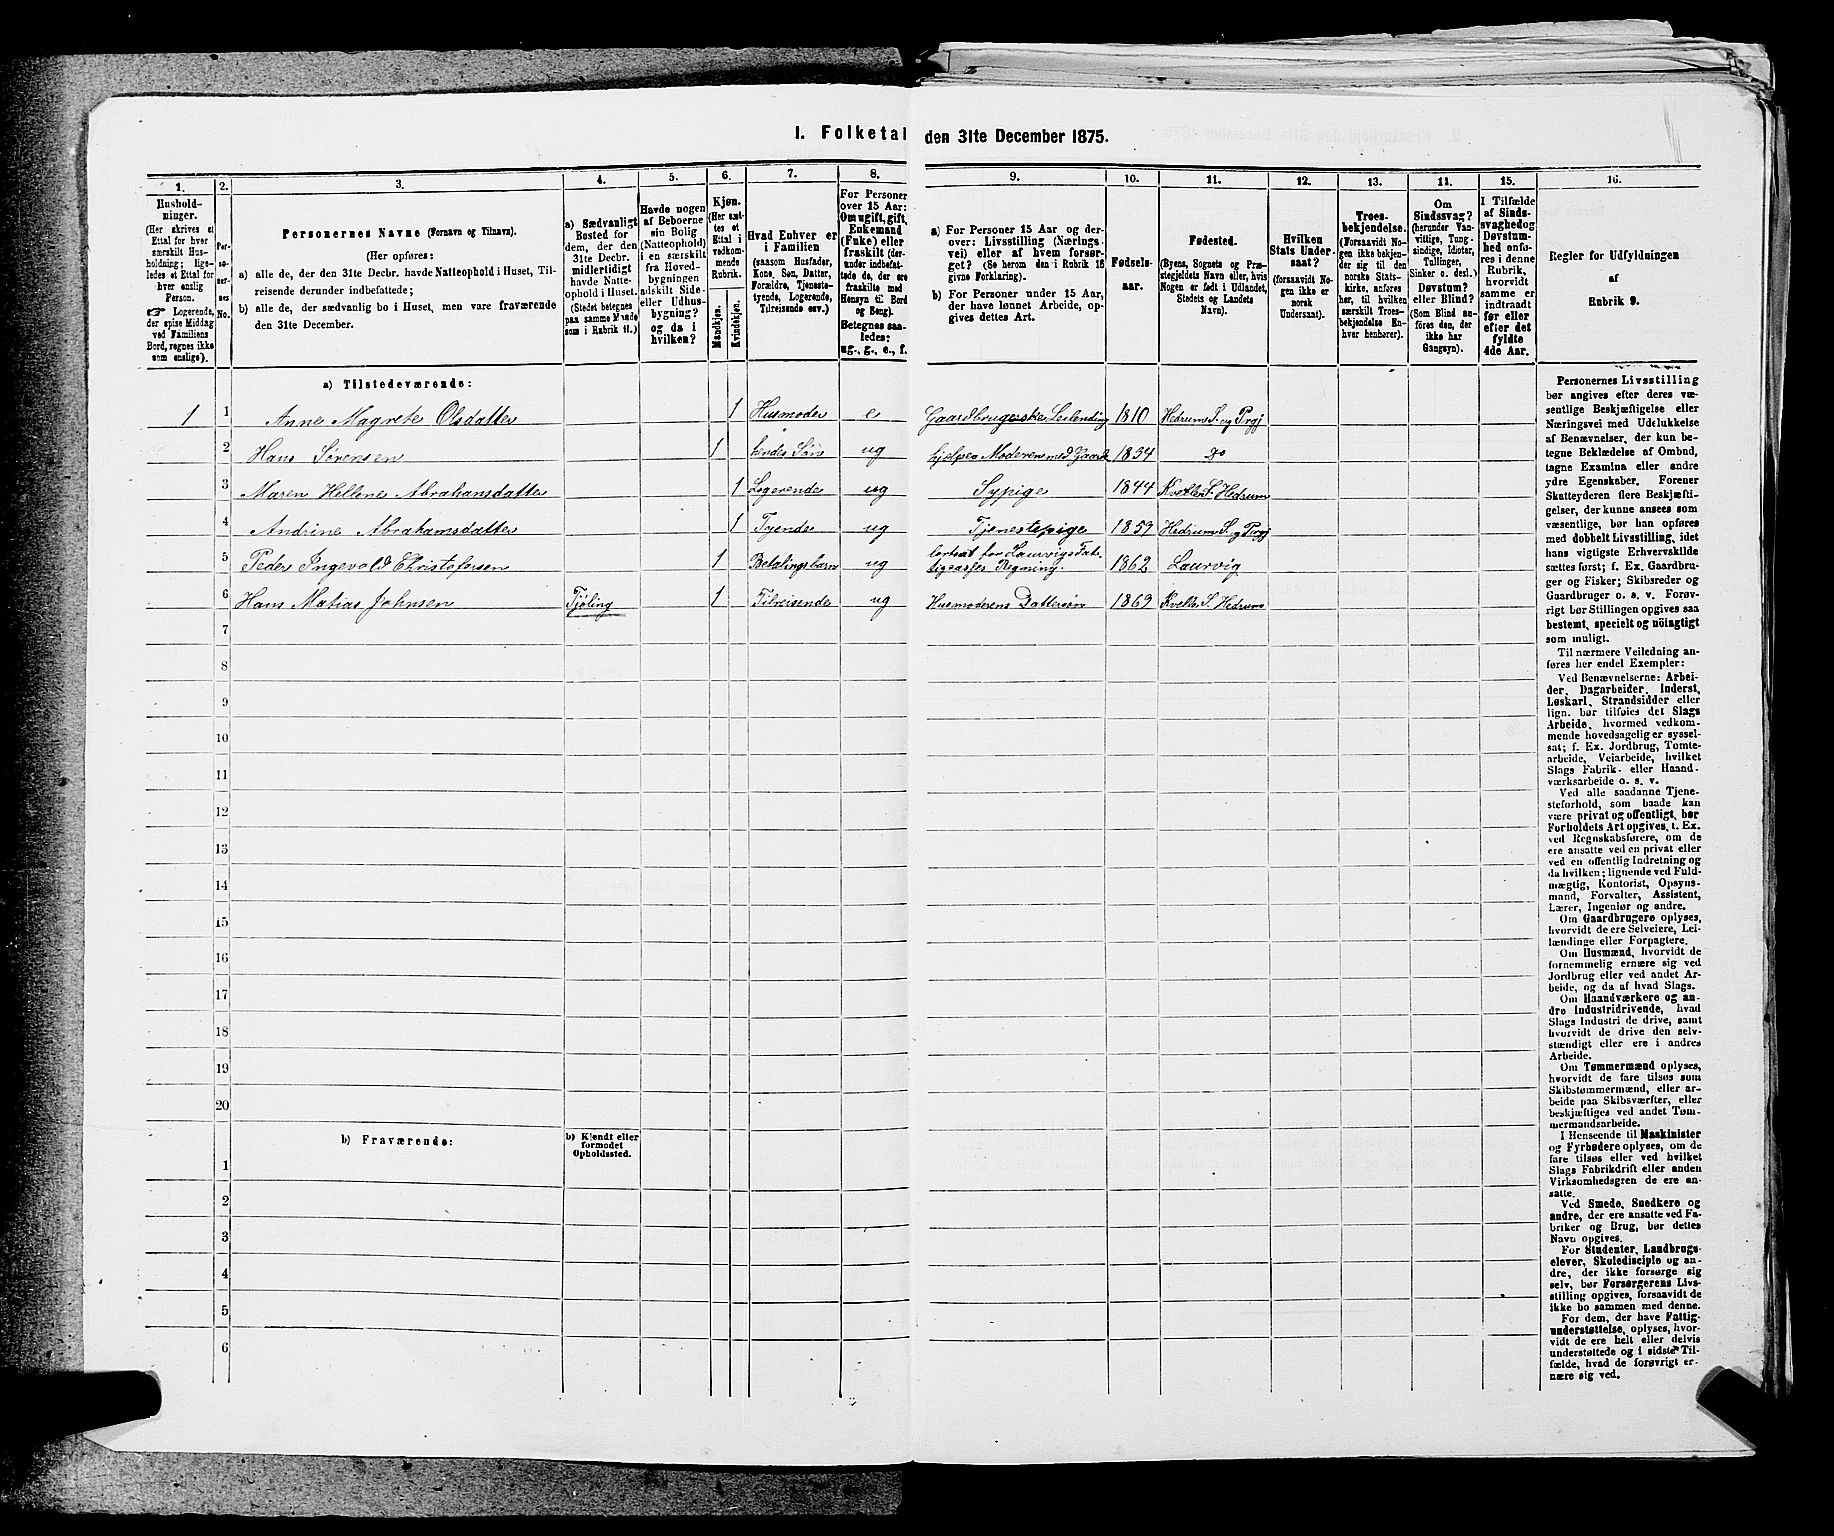 1. Folketal den 31te December 1875.
1. 2. 3. 4. 5. 6. 7. 8. 9. 10. 11. 12. 13. 14. 15. 16.
Hushold-
ninger.
(Her skrives et
Ettal for hver
særskilt Hus-
holdning; lige-
ledes et Ettal for
hver enslig
Person.
☞ Logerende,
der spise Middag
ved Familiens
Bord, regnes ikke
som enslige).
Per-
so-
ner-
nes
No.
Personernes Navne (Fornavn og Tilnavn).
(Her opføres:
a) alle de, der den 31te Decbr. havde Natteophold i Huset, Til-
reisende derunder indbefattede;
b) alle de, der sædvanlig bo i Huset, men vare fraværende
den 31te December.
a) Sædvanligt
Bosted for
dem, der den
31te Decbr.
midlertidigt
havde Natte-
ophold i Huset.
(Stedet betegnes
paa samme Maade
som i Rubrik 11.)
Havde nogen
af Beboerne
sin Bolig
(Natteophold)
i en særskilt
fra Hoved-
bygningen
adskilt Side-
eller Udhus-
bygning?
og da i
hvilken?
Kjøn.
(Her sæt-
tes et
Ettal i
vedkom-
mende
Rubrik.
Mandkjøn.
Kvindekjøn.
Hvad Enhver er
i Familien
(saasom Husfader,
Kone, Søn, Datter,
Forældre, Tjeneste-
tyende, Logerende,
Tilreisende osv.)
For Personer
over 15 Aar:
Om ugift, gift,
Enkemand
(Enke) eller
fraskilt (der-
under indbefat-
tede de, der ere
fraskilte med
Hensyn til Bord
og Seng).
Betegnes saa-
ledes:
ug., g., e., f.
a) For Personer 15 Aar og der-
over: Livsstilling (Nærings-
vei) eller af hvem forsør-
get? (Se herom den i Rubrik 16
givne Forklaring).
b) For Personer under 15 Aar,
der have lønnet Arbeide, op-
gives dettes Art.
Fødsels-
aar.
Fødested.
(Byens, Sognets og Præ-
stegjeldets Navn eller, hvis
Nogen er født i Udlandet,
Stedets og Landets
Navn).
Hvilken
Stats Under-
saat?
(forsaavidt No-
gen ikke er
norsk
Undersaat).
Troes-
bekjendelse.
(Forsaavidt No-
gen ikke bekjen-
der sig til den
norske Stats-
kirke, anføres
her, til hvilken
særskilt Troes-
bekjendelse En-
hver henhører).
Om
Sindssvag?
(herunder Van-
vittige, Tung-
sindige, Idioter,
Tullinger,
Sinker o. desl.)
Døvstum?
eller Blind?
(Som Blind an-
føres den, der
ikke har
Gangsyn).
I Tilfælde
af Sinds-
svaghed og
Døvstum-
hed anfø-
res i denne
Rubrik,
hvorvidt
samme er
indtraadt
før eller
efter det
fyldte
4de Aar.
Regler for Udfyldningen
af
Rubrik 9.
a) Tilstedeværende:
1 1 Anne Magrete Olsdatter 1 Husmoder e Gaardbrugerske Leilending 1810 Hedrum S. og Prgj
2 Hans Sørensen 1 hendes Søn ug hjelper Moderen med Gaard. 1834 Do
3 Maren Hellene Abrahansdatter 1 Logerende ug Sypige 1844 Kvelle S. Hedrum
4 Andrine Abrahamsdatter 1 Tyende ug Tjenestepige 1859 Hedrum S. og Prgj
5 Peder Ingevold Christofersen 1 Betalingsbarn ug bortsat for Laurvigs Fat-
tigcasses Regning. 1862 Laurvig
6 Hans Matias Johnsen Tjöling 1 Tilreisende ug Husmoderens Dattersøn 1869 Kvelle S. Hedrum
7
8
9
10
11
12
13
14
15
16
17
18
19
20
b) Fraværende:
b) Kjendt eller
formodet
Opholdssted.
1
2
3
4
5
6
Personernes Livsstilling
bør angives efter deres væ-
sentlige Beskjæftigelse eller
Næringsvei med Udelukkelse
af Benævnelser, der kun be-
tegne Beklædelse af Ombud,
tagne Examina eller andre
ydre Egenskaber. Forener
Skatteyderen flere Beskjæfti-
gelser, der kunne ansees som
væsentlige, bør han opføres
med dobbelt Livsstilling, idet
hans vigtigste Erhvervskilde
sættes først; f. Ex. Gaardbru-
ger og Fisker; Skibsreder og
Gaardbruger o. s. v. Forøv-
rigt bør Stillingen opgives saa
bestemt, specielt og nöiagtigt
som muligt.
Til nærmere Veiledning an-
føres her endel Exempler:
Ved Benævnelserne: Arbei-
der, Dagarbeider, Inderst,
Løskarl, Strandsidder eller
lign. bør tilføies det Slags
Arbeide, hvormed vedkom-
mende hovedsagelig er syssel-
sat; f. Ex. Jordbrug, Tomte-
arbeide, Veiarbeide, hvilket
Slags Fabrik- eller Haand-
værksarbeide o. s. v.
Ved alle saadanne Tjene-
steforhold, som baade kan
være privat og offentligt, bør
Forholdets Art opgives, t. Ex.
ved Regnskabsførere, om de
ere ansatte ved en privat eller
ved en offentlig Indretning og
da hvilken; lignende ved Fuld-
mægtig, Kontorist, Opsyns-
mand, Forvalter, Assistent,
Lærer, Ingeniør og andre.
Om Gaardbrugere oplyses,
hvorvidt de ere Selveiere, Lei-
lændinge eller Forpagtere.
Om Husmænd, hvorvidt de
fornemmelig ernære sig ved
Jordbrug eller ved andet Ar-
beide, og da af hvad Slags.
Om Haandværkere og an-
dre Industridrivende, hvad
Slags Industri de drive, samt
hvorvidt de drive den selv-
stændigt eller ere i andres
Arbeide.
Om Tømmermænd oplyses,
hvorvidt de fare tilsøs som
Skibstømmermænd, eller ar-
beide paa Skibsværfter, eller
beskjæftiges ved andet Tøm-
mermandsarbeide.
I Henseende til Maskinister
og Fyrbødere oplyses, om de
fare tilsøs eller ved hvilket
Slags Fabrikdrift eller anden
Virksomhedsgren de ere an-
satte.
Ved Smede, Snedkere og
andre, der ere ansatte ved Fa-
briker og Brug, bør dettes
Navn opgives.
For Studenter, Landbrugs-
elever, Skoledisciple og an-
dre, der ikke forsørge sig
selv, bør Forsørgerens Livs-
stilling opgives, forsaavidt de
ikke bo sammen med denne.
For dem, der have Fattig-
understøttelse, oplyses, hvor-
vidt de ere helt eller delvis
understøttede og i sidste Til-
fælde, hvad de forøvrigt er-
nære sig ved.